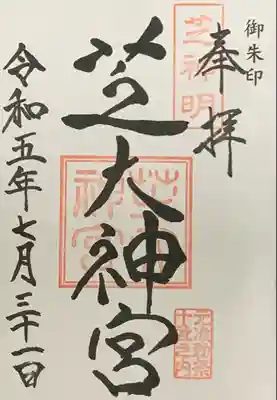 御朱印
奉拝
芝神明
芝大神宮
令和五年七月三十一日